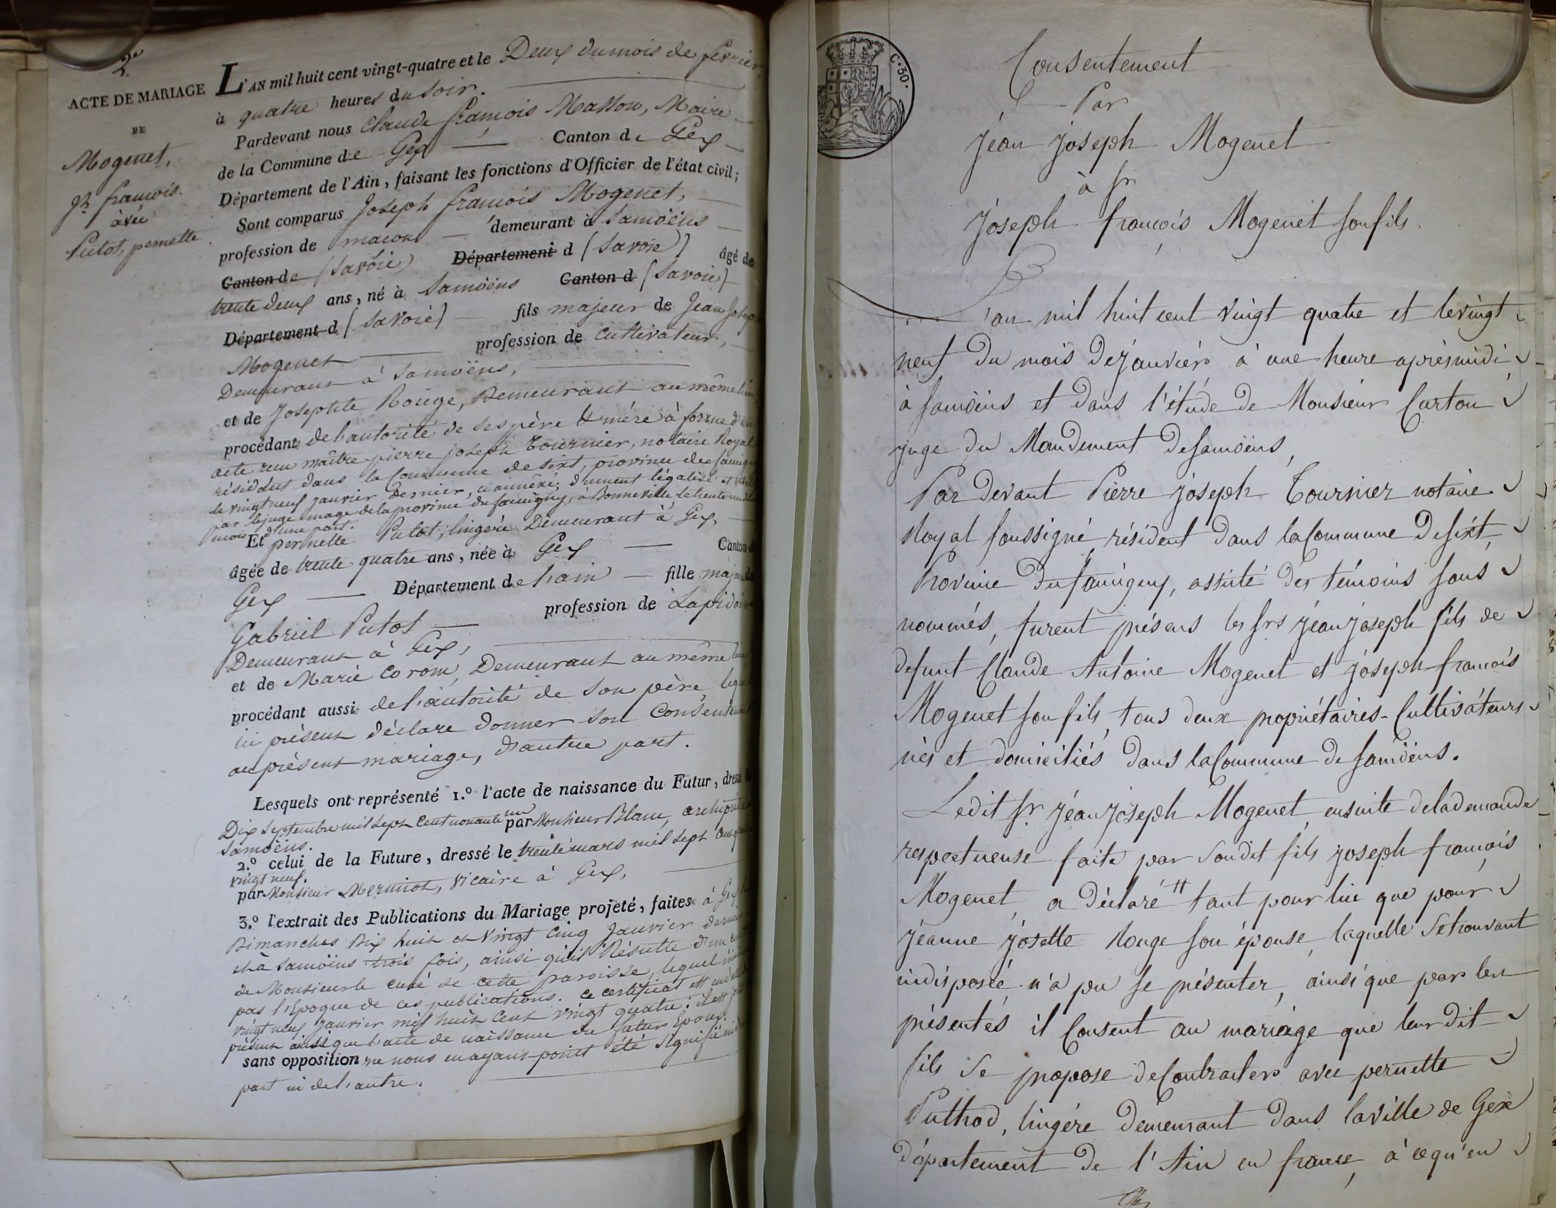 2.e
ACTE DE MARIAGE
DE
Mogenet,
jh. francois.
avec
Putot, pernette
L'AN mil huit cent vingt-quatre et le Deux du mois de fevrier
à quatre heures du soir.
Pardevant nous Claude françois Masson, Maire
de la Commune de Gex Canton de Gex
Département de l'Ain, faisant les fonctions d'Officier de l'état civil;
Sont comparus Joseph françois Mogenet,
profession de macon demeurant à Samoëns
Canton de (Savoie) Département d (Savoie) âgé de
trente deux ans, né à Samoëns Canton d (Savoie)
Département d (Savoie) fils majeur de Jean Joseph
Mogenet profession de cultivateur,
Demeurant à Samoëns,
et de Josephte Rouge, Demeurant au même lieu
procédant de l'autorité de ses père & mère à forme d'un
acte reçu maître pierre joseph Tournier, notaire Royal
résidant dans la Commune de sixt, province de faucigny
le vingt neuf janvier dernier, ci annexé, dument légalisé
par le juge mage de la province du faucigny, à Bonneville le trente
mois, d'une part.
Et pernette Putot, lingère Demeurant à Gex,
âgée de trente quatre ans, née à Gex Canton
Gex Département de l'ain fille majeure
Gabriel Putot profession de Lapidaire
Demeurant à Gex,
et de Marie Corom, Demeurant au même lieu
procédant aussi de l'autorité de son père, lequel
ici présent déclare donner son Consentement
au présent mariage, d'autre part.
Lesquels ont représenté 1.º l'acte de naissance du Futur, dressé
Dix septembre mil sept cent nonante un par Monsieur Blanc,
Samoëns.
2.º celui de la Future, dressé le trente mars mil sept cent
vingt neuf.
par Monsieur Mermier, vicaire à Gex,
3.º l'extrait des Publications du Mariage projeté, faites à Gex
Dimanches Dix huit et vingt cinq janvier dernier
et à Samoëns trois fois, ainsi qu'il Résulte d'un
de Monsieur le curé de cette paroisse, lequel
pas l'époque de ces publications. Ce certificat est
vingt neuf janvier mil huit cent vingt quatre;
présent ainsi que l'acte de naissance du futur Epoux.
sans opposition ne nous en ayant point été signifié
part ni de l'autre.
C. 50.
Consentement
Par
jéan joseph Mogenet
à Sr
joseph françois Mogenet son fils.
L'an mil huit cent vingt quatre et le vingt
neuf du mois de janvier à une heure après midi
à Samoëns et dans l'étude de Monsieur Curton
juge du Mandement de Samoëns,
Par devant Pierre joseph Tournier notaire
Royal soussigné, résident dans la Commune de sixt,
Province du faucigny, assisté des témoins sous
nommés, furent présens les srs jéan joseph fils de
defunt Claude Antoine Mogenet et joseph françois
Mogenet son fils, tous deux propriétaires-Cultivateurs
nés et domiciliés dans la Commune de Samoëns.
Ledit sr. jéan joseph Mogenet ensuite de la demande
respectueuse faite par sondit fils joseph françois
Mogenet, a déclaré tant pour lui que pour
jéanne josette Rouge son épouse, laquelle se trouvant
indisposée n'a pu se présenter, ainsi que par les
présentes il Consent au mariage que leur dit
fils se propose de Contracter avec pernette
Puthod, lingére demeurant dans la ville de Gex
département de l'Ain en france, à ce qu'en